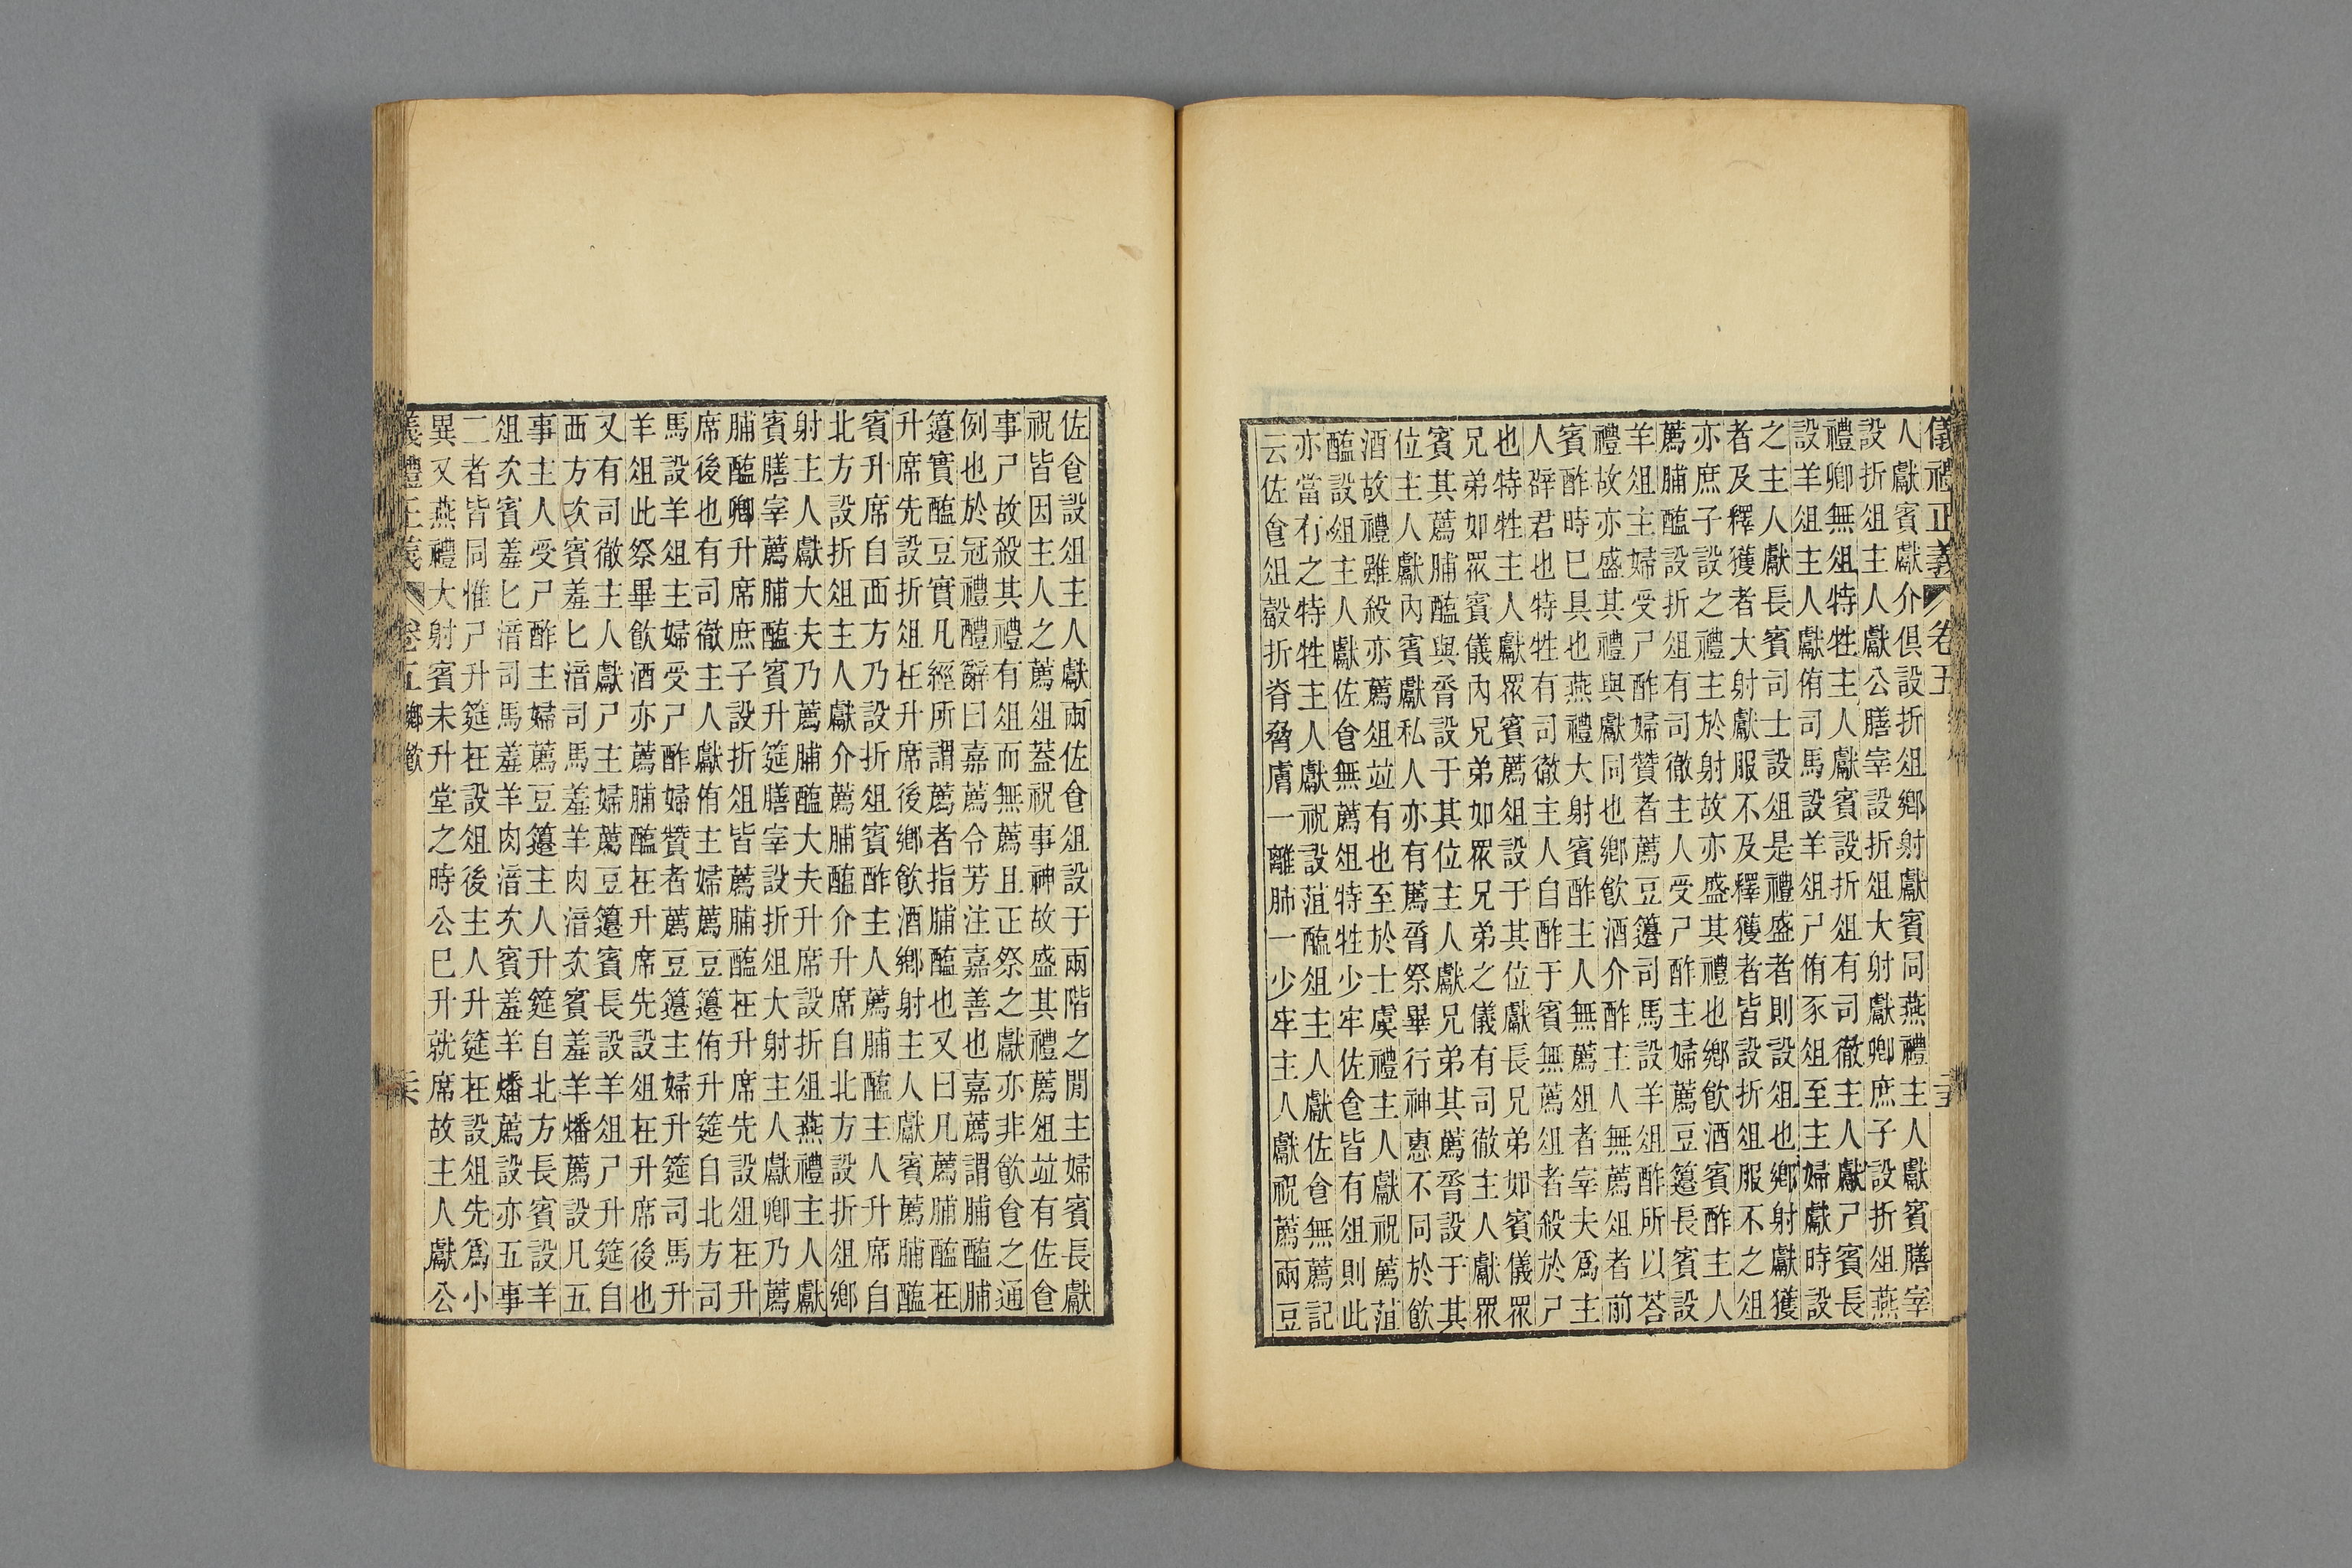 儀禮正義 卷五
人獻賓獻介俱設折俎鄉射獻賓同燕禮主人獻賓膳宰
設折俎主人獻公膳宰設折俎大射獻卿庶子設折俎燕
禮卿無俎特牲主人獻賓設折俎有司徹主人獻尸賓長
設羊俎主人獻侑司馬設羊俎尸侑豕俎至主婦獻時設
之主人獻長賓司士設俎是禮盛者則設俎也鄉射獻獲
者及釋獲者大射獻服不及釋獲者皆設折俎服不之俎
亦庶子設之禮主於射故亦盛其禮也鄉飲酒賓酢主人
薦脯醢設折俎有司徹主人受尸酢主婦薦豆籩長賓設
羊俎主婦受尸酢婦贊者薦豆籩司馬設羊俎酢所以荅
禮故亦盛其禮與獻同也鄉飲酒介酢主人無薦俎者前
賓酢時巳具也燕禮大射賓酢主人無薦俎者宰夫爲主
人辟君也特牲有司徹主人自酢于賓無薦俎者殺於尸
也特牲主人獻眾賓薦俎設于其位獻長兄弟如賓儀眾
兄弟如眾賓儀內兄弟如眾兄弟之儀有司徹主人獻眾
賓其薦脯醢與脀設于其位主人獻兄弟其薦脀設于其
位主人獻內賓獻私人亦有薦脀祭畢行神惠不同於飲
酒故禮雖殺亦薦俎並有也至於士虞禮主人獻祝薦菹
醢設俎主人獻佐食無薦俎特牲少牢佐食皆有俎則此
亦當有之特牲主人獻祝設菹醢俎主人獻佐食無薦記
云佐食俎觳折脊脅膚一離肺一少牢主人獻祝薦兩豆
佐食設俎主人獻兩佐食俎設于兩階之閒主婦賓長獻
祝皆因主人之薦俎蓋祝事神故盛其禮薦俎並有佐食
事尸故殺其禮有俎而無薦且正祭之獻亦非飲食之通
例也於冠禮醴辭曰嘉薦令芳注嘉善也嘉薦謂脯醢脯
籩實醢豆實凡經所謂薦者指脯醢也又曰凡薦脯醢在
升席先設折俎在升席後鄉飲酒鄉射主人獻賓薦脯醢
賓升席自西方乃設折俎賓酢主人薦脯醢主人升席自
北方設折俎主人獻介薦脯醢介升席自北方設折俎鄉
射主人獻大夫乃薦脯醢大夫升席設折俎燕禮主人獻
賓膳宰薦脯醢賓升筵膳宰設折俎大射主人獻卿乃薦
脯醢卿升席庶子設折俎皆薦脯醢在升席先設俎在升
席後也有司徹主人獻侑主婦薦豆籩侑升筵自北方司
馬設羊俎主婦受尸酢婦贊者薦豆籩主婦升筵司馬升
羊俎此祭畢飲酒亦薦脯醢在升席先設俎在升席後也
又有司徹主人獻尸主婦薦豆籩賓長設羊俎尸升筵自
西方次賓羞匕湆司馬羞羊肉湆次賓羞羊燔薦設凡五
事主人受尸酢主婦薦豆籩主人升筵自北方長賓設羊
俎次賓羞匕湆司馬羞羊肉湆次賓羞羊燔薦設亦五事
二者皆同惟尸升筵在設俎後主人升筵在設俎先爲小
異又燕禮大射賓未升堂之時公巳升就席故主人獻公
義禮正義 卷五 鄉飲